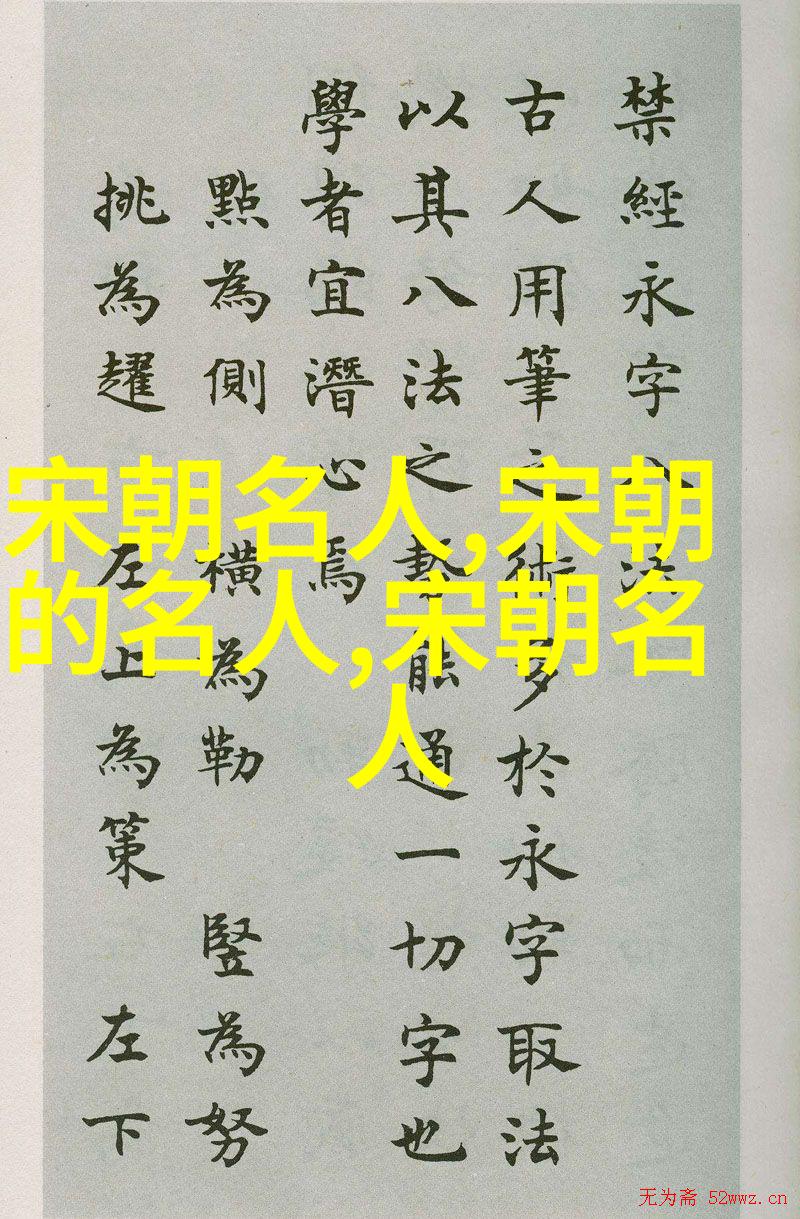 禁經永字八法
古人用筆之術多於永字取法
以其八法之勢能通一切字也
學者宜潛心焉
點為側 橫為勒 竪為努
挑為趯 左上為策 左下
宋朝名人,宋朝
的名人,宋朝名
人
无为斋 52wwz.cn